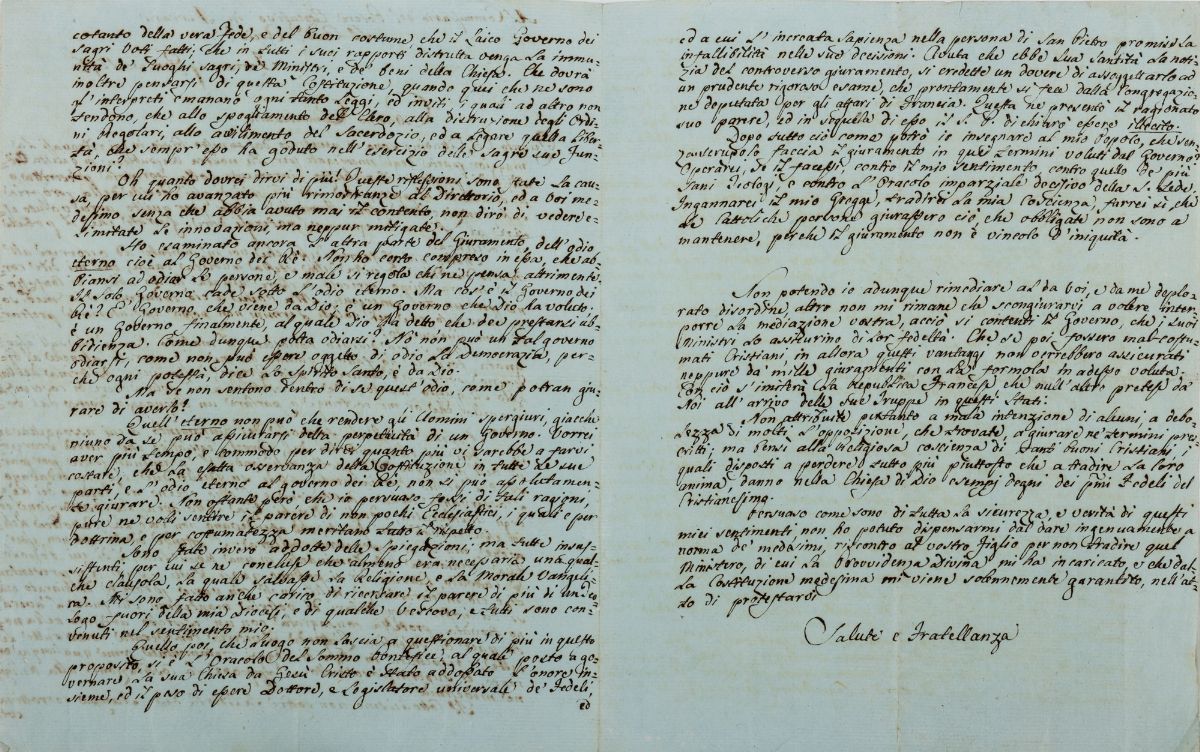 cotanto della vera Fede, e del buon costume che il Laico Governo dei
sagri Voti fatti, che in tutti i suoi rapporti distrutta venga la immu-
nità de' Luoghi sagri, de' Ministri, de' beni della Chiesa. Che dovrà
inoltre pensarsi di questa Costituzione, quando quei che ne sono
gl'interpreti emanano ogni tanto Leggi, ed inviti, i quali ad altro non
tendono, che allo spogliamento del Clero, alla distruzione degli Ordi-
ni Regolari, allo avilimento del Sacerdozio, ed a ledere quella Liber-
tà, che sempr'esso ha goduto nell'esercizio delle sagre sue Fun-
zioni?
Oh quanto dovrei dirvi di più! Queste riflessioni sono state la cau-
sa, per cui ho avanzato più rimostranze al Direttorio, ed a voi me-
desimo senza che abbia avuto mai il contento, non dirò di vedere e-
limitate le innodazioni ma neppur mitigate.
Ho esaminato ancora l'altra parte del Giuramento dell'odio
eterno cioè al Governo dei Rè. Non ho certo compreso in essa, che ab-
biansi ad odiar le persone, e male si regola chi ne pensa altrimente.
Il solo Governo cade sotto l'odio eterno. Ma cos'è il Governo dei
Rè? È Governo, che viene da Dio; è un Governo che Dio ha voluto:
è un Governo finalmente, al quale Dio ha detto che dee prestarsi ub-
bidienza. Come dunque potrà odiarsi? Nò non può un tal governo
odiarsi, come non può essere oggetto di odio la Democrazia, per-
che ogni potestà, dice lo Spirito Santo, è da Dio.
Ma se non sentono dentro di se quest'odio, come potran giu-
rare di averlo?
Quell'eterno non può che rendere gli Uomini spergiuri, giacchè
niuno da se può assicurarsi della perpetuità di un Governo. Vorrei
aver più tempo, e commodo per dirvi quanto più vi sarebbe a farvi
costare, che la esatta osservanza della Costituzione in tutte le sue
parti, e l'odio eterno al governo dei Rè, non si può assolutamen-
te giurare. Non ostante però che io persuaso fossi di tali ragioni,
pure ne volli sentire il parere di non pochi Ecclesiastici, i quali e per
dottrina, e per costumatezza meritano tutto il rispetto.
Sono state invero addotte delle Spiegazioni, ma tutte insus-
sistenti, per cui se ne concluse che almeno era necessaria una qual-
che clausola, la quale salvasse la Religione, e la Moral Vangeli-
ca. Mi sono fatto anche carico di ricercare il parere di più di un Teo-
logo fuori della mia Diocesi, e di qualche Vescovo, e tutti sono con-
venuti nel sentimento mio.
Quello poi, che luogo non lascia a questionare di più in questo
proposito, si è l'Oracolo del Sommo Pontefice, al quale posto a go-
vernare la sua Chiesa da Gesù Cristo è stato addossato l'onore in-
sieme, ed il peso di essere Dottore, e Legislatore universale de' Fedeli,
ed
ed a cui l'increata Sapienza nella persona di San Pietro promise la
infallibilità nelle sue decisioni. Avuta che ebbe Sua Santità la noti-
zia del controverso giuramento, si credette un dovere di assoggettarlo ad
un prudente rigoroso esame, che prontamente si fece dalla Congregazio-
ne deputata per gli affari di Francia. Questa ne presentò il ragionato
suo parere, ed in seguela di esso il S. P. dichiarò essere illecito.
Dopo tutto ciò come potrò io insegnare al mio Popolo, che sen-
za scrupolo faccia il giuramento in que' termini voluti dal Governo?
Opererei, se il facessi, contro il mio sentimento contro quello de' più
sani Teologi, e contro l'Oracolo imparziale decisivo della S. Sede.
Ingannarei il mio Gregge, tradirei la mia coscienza, farei sì che
le Cattoliche persone giurassero ciò che obbligate non sono a
mantenere, perchè il giuramento non è vincolo d'iniquità.
Non potendo io adunque rimediare al da voi, e da me deplo-
rato disordine, altro non mi rimane che scongiurarvi, a volere inter-
porre la mediazione vostra, acciò si contenti il Governo, che i suoi
Ministri lo assicurino di lor fedeltà. Che se poi fossero mal costu-
mati Cristiani, in allora questi vantaggi non verrebbero assicurati
neppure da mille giuramenti con la formola in adesso voluta.
Con ciò s'imiterà la Republica Francese che null'altro pretese da
Noi all'arrivo delle sue Truppe in questi Stati.
Non attribuite pertanto a mala intenzione di alcuni, a debo-
lezza di molti l'opposizione, che trovate, a giurare ne' termini pre-
critti; ma bensì alla Religiosa coscienza di tanti buoni Cristiani, i
quali disposti a perdere tutto più piuttosto che a tradire la loro
anima, danno nella Chiesa di Dio esempj degni dei p̄mi Fedeli del
Cristianesimo.
Persuaso come sono di tutta la sicurezza, e verità di questi
miei sentimenti, non ho potuto dispensarmi dal dare ingenuamente a
norma de' medesimi, riscontro al vostro Figlio per non tradire quel
Ministero, di cui la Provvidenza Divina mi ha incaricato, e che dal-
la Costituzione medesima mi viene solennemente garantito, nell'at-
to di protestarvi
Salute e Fratellanza